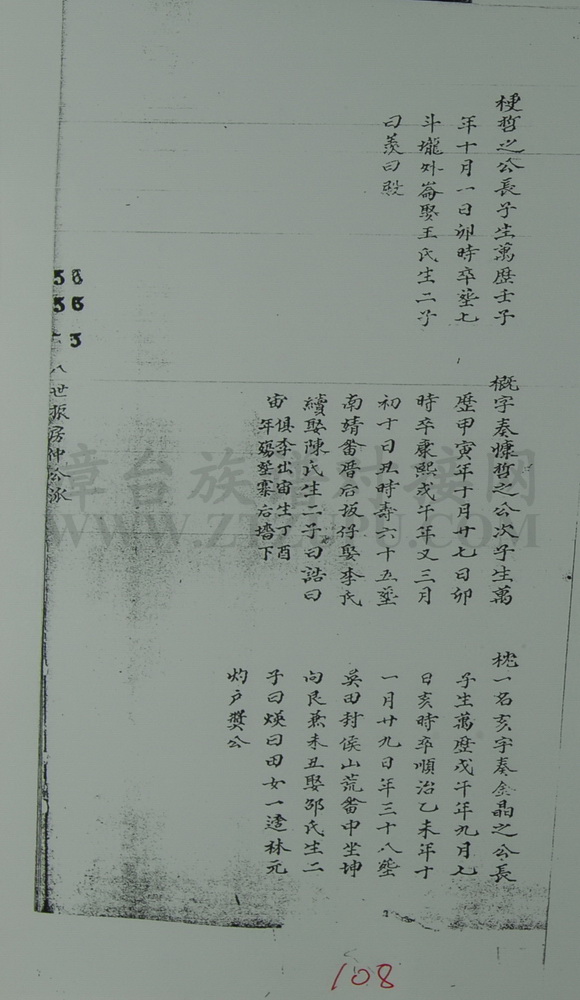 梗哲之公長子生萬歷壬子
年十月一日卯時卒塟七
斗壠外崙娶王氏生二子
曰羨曰毀
概字奏慷哲之公次子生萬
歷甲寅年十月廿七日卯
時卒康熙戊午年又三月
初十日丑時壽六十五塟
南靖畨厝后板仔娶李氏
續娶陳氏生二子曰誥曰
宙俱李出宙生丁酉
年殤塟寨后墻下
枕一名亥字奏金晶之公長
子生萬歷戊午年九月七
日亥時卒順治乙未年十
一月廿九日年三十八塟
吳田封侯山荒畨中坐坤
向艮兼未丑娶邵氏生二
子曰煐曰田女一适林元
灼戸奬公
八世振房仲公派
漳台族谱对接网
108